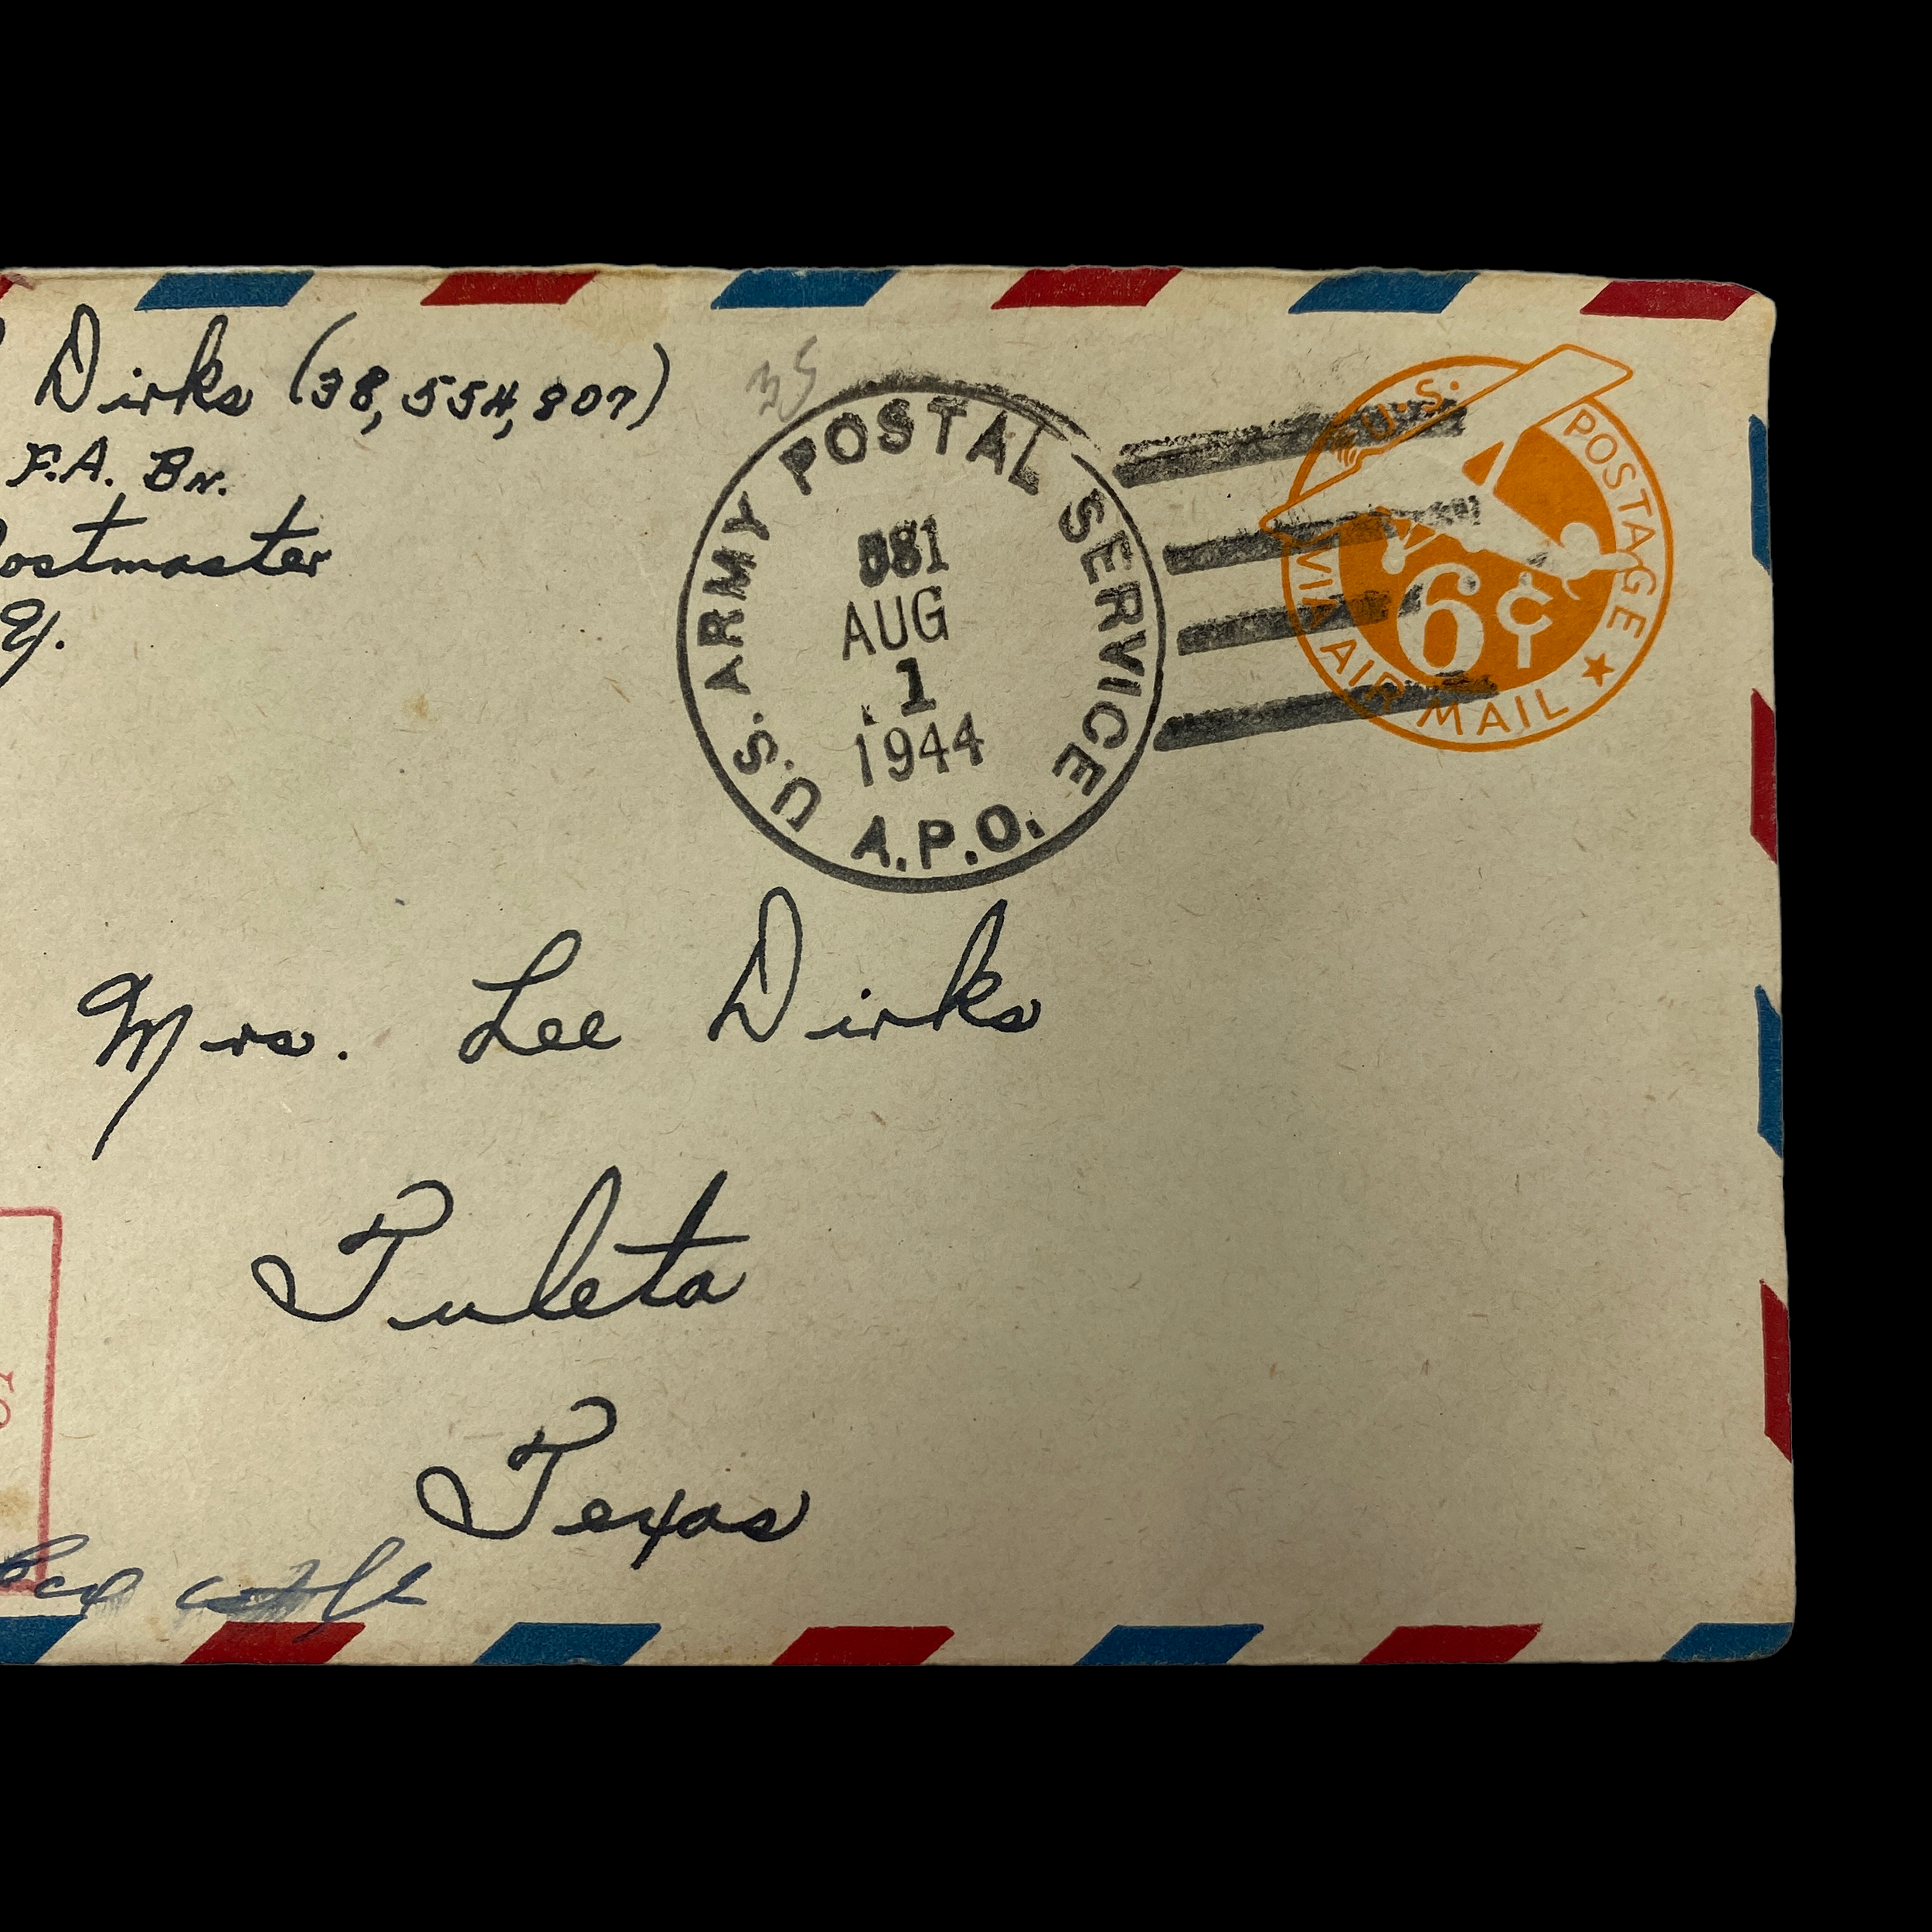 Dirks (38,554,807)
F.A. Bn.
ostmaster
Y.
35
U.S. ARMY POSTAL SERVICE
081
AUG
1
1944
A.P.O.
U.S. POSTAGE
6¢
VIA AIR MAIL
Mrs. Lee Dirks
Tuleta
Texas